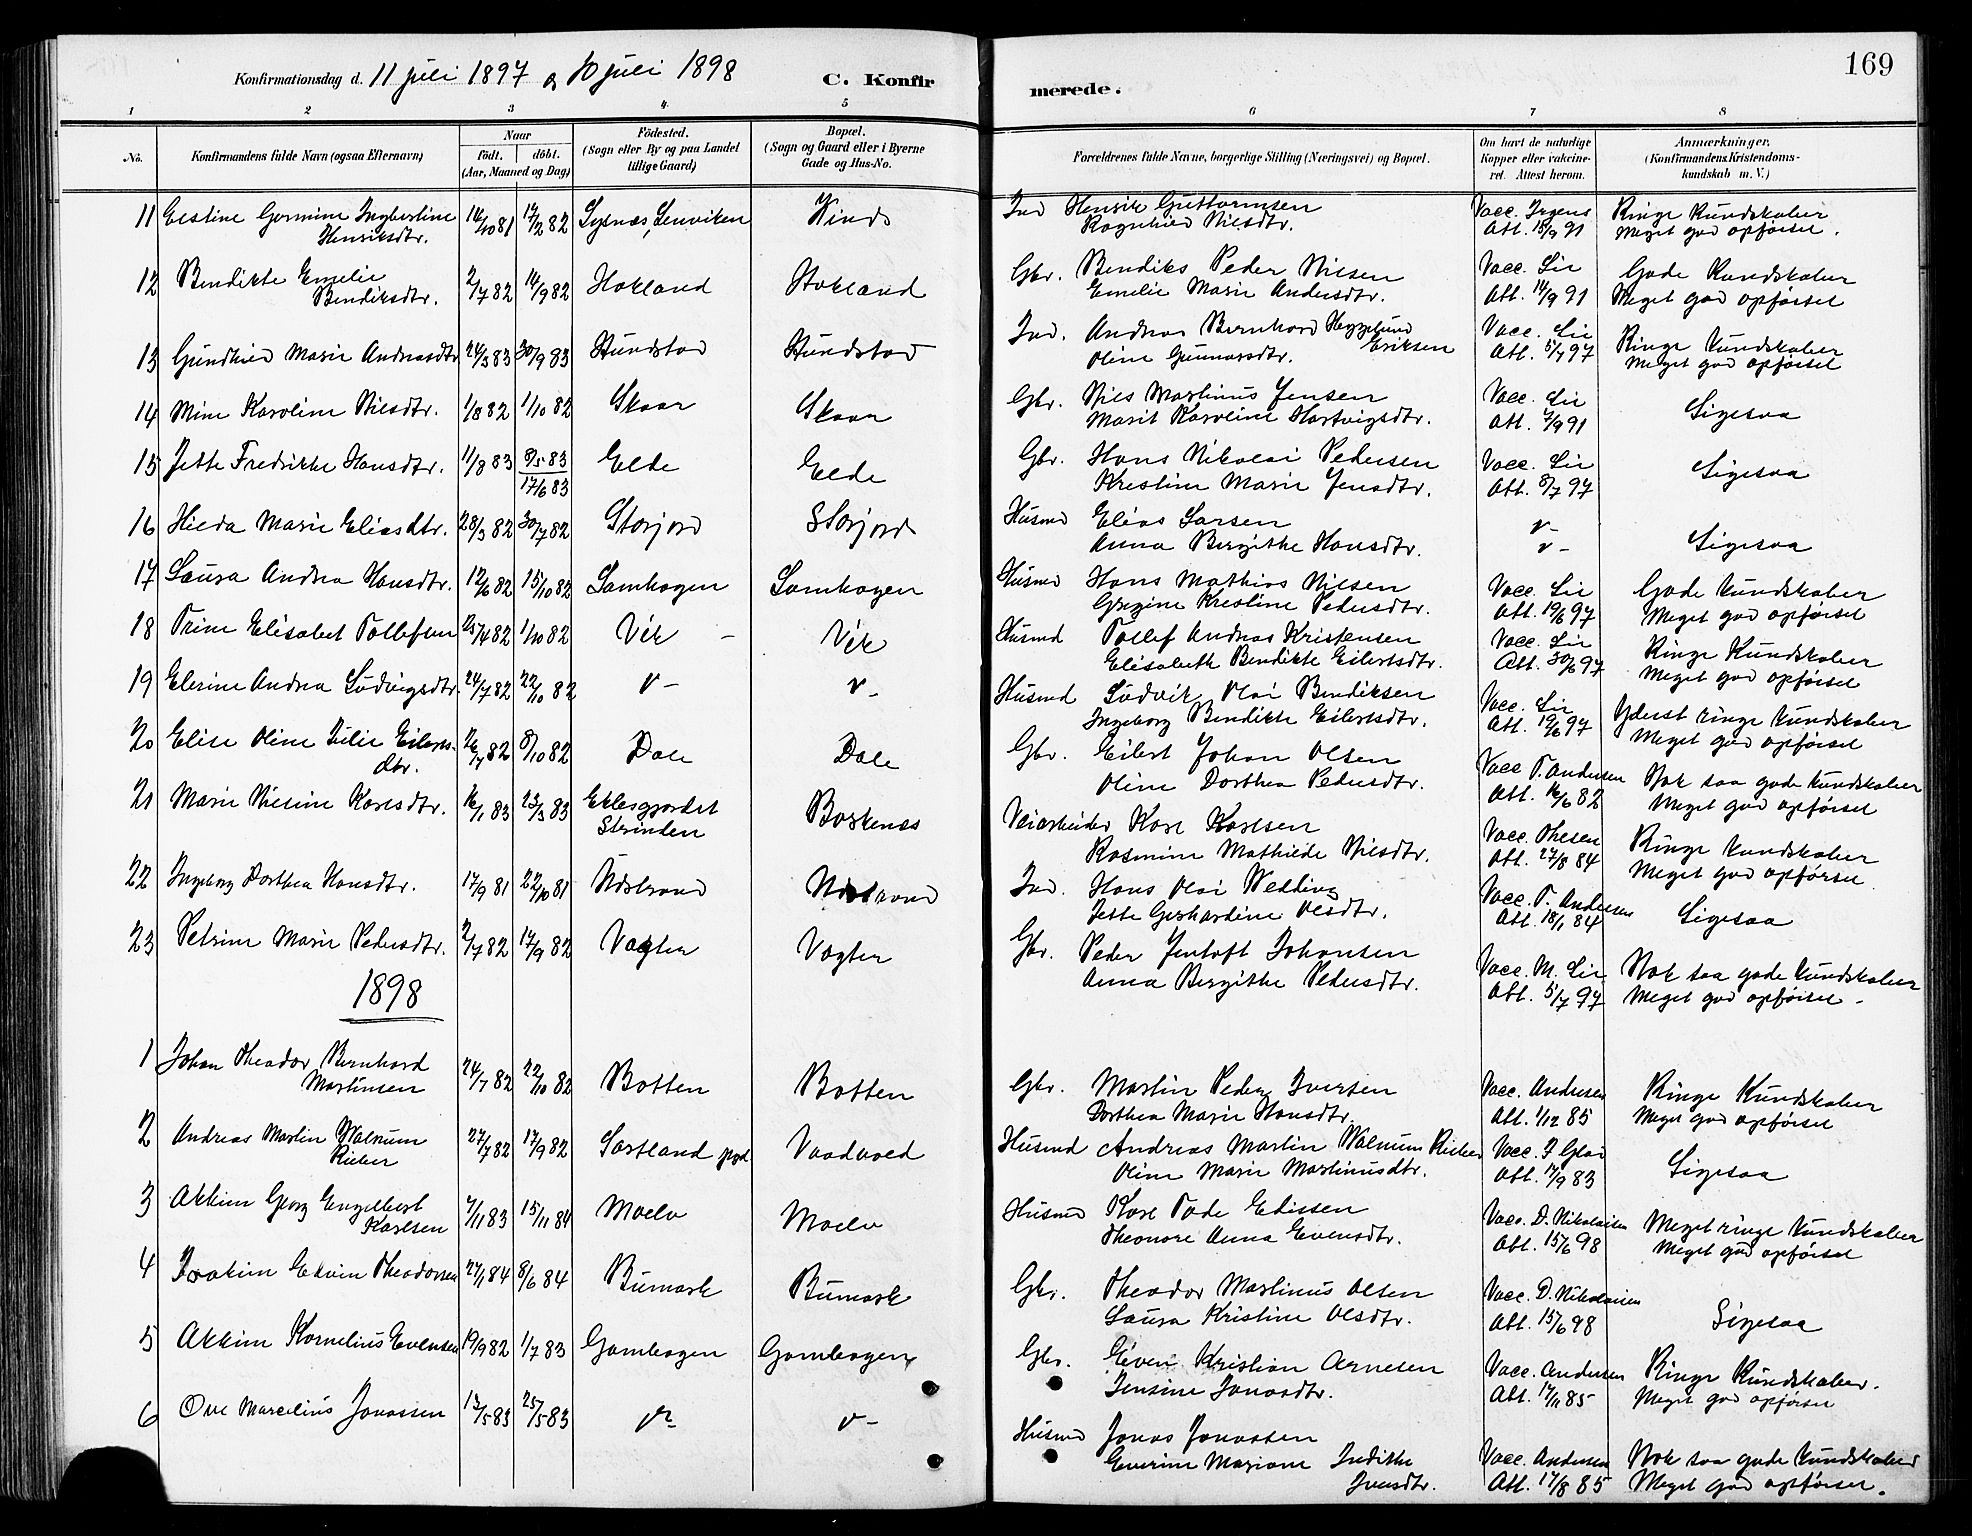 169
Konfirmationsdag d. 11 juli 1897 og 10 juli 1898
C. Konfirmerede.
1 2 3 4 5 6 7 8
No.
Konfirmandens fulde Navn (ogsaa Efternavn)
Naar
født. døbt.
(Aar, Maaned og Dag)
Födested.
(Sogn eller By og paa Landet
tillige Gaard)
Bopæl.
(Sogn og Gaard eller i Byerne
Gade og Hus-No.
Forældrenes fulde Navne, borgerlige Stilling (Næringsvei) og Bopæl.
Om havt de naturlige
Kopper eller vakcine-
ret. Attest herom.
Anmærkninger.
(Konfirmandens Kristendoms-
kundskab m. V.)
11 Henriksdtr. 17/2 82 Ind Henrik Guttormsen Vacc.
Ragnhild Nilsdtr. Att. 15/9 91 Ringe Kundskaber
Meget god opførsel.
12 Bendikte Emelie
Bendiksdtr. 2/7 82 14/9 82 Hokland Hokland Gbr. Bendiks Peder Nilsen Vacc. Lie Gode Kundskaber
Emelie Marie Andersdtr. Att. 14/9 91 Meget god opførsel
13 Gundhild Marie Andreasdtr 24/5 83 30/9 83 Hundstad Hundstad Ind. Andreas Bernhard Heggelund Vacc. Lie Ringe Kundskaber
Eriksen
Oline Gunnarsdtr. Att. 5/7 97 Meget god opførsel
14 Mine Karoline Nilsdtr. 1/8 82 1/10 82 Skaar Skaar Gbr. Nils Martinus Jensen Vacc. Lie Ligesaa
Marit Karoline Hartvigsdtr. Att. 7/9 91
15 Jette Fredrikke Hansdtr. 11/8 83 8/5 83 Elde Elde Gbr. Hans Nikolai Pedersen Vacc. Lie Ligesaa
17/6 83 Kristine Marie Jensdtr. Att. 8/7 97
16 Hilda Marie Eliasdtr. 28/3 82 30/7 82 Storjord Storjord Husmd Elias Larsen v - Ligesaa
Anna Bergithe Hansdtr. v -
17 Laura Andrea Hansdtr. 12/6 82 15/10 82 Lamhagen Lamhagen Husmd Hans Mathias Nilsen Vacc. Lie Gode Kundskaber
Kristine Pedersdtr. Att. 19/6 97 Meget god opførsel
18 Trine Elisabet Tollefsen 25/4 82 1/10 82 Vik - Vik Husmd Tollef Andreas Kristensen Vacc. Lie Ringe Kundskaber
Elisabeth Bendikte Eilertsdtr. Att. 30/6 97 Meget god opførsel
19 Elerine Andrea Ludvigsdtr. 24/7 82 22/10 82 v - v - Husmd Ludvik Olai Bendiksen Vacc. Lie Yderst ringe Kundskaber
Ingeborg Bendikte Eilertsdtr. Att. 19/6 97 Meget god opførsel
20 Elise Oline Julie Eilerts-
dtr. 26/7 82 8/10 82 Dale Dale Gbr. Eilert Johan Olsen Vacc T. Andersen Nok saa gode Kundskaber
Oline Dorthea Pedersdtr. Att. 16/6 82 Meget god opførsel
21 Marie Nilsine Karlsdtr. 16/1 83 23/3 83 Eklesgjordet
Strinden Borkenes Veiarbeider Karl Karlsen Vacc. Thesen Ringe Kundskaber
Rasmine Mathilde Nilsdtr. Att. 27/8 84 Meget god opførsel
22 Ingeborg Dorthea Hansdtr. 17/9 81 22/10 81 Ind. Hans Olai Wedding Vacc. T. Andersen Ligesaa
Jette Gerhardine Olsdtr. Att. 18/1 84
23 Petrine Marie Pedersdtr. 2/7 82 17/9 82 Vagter Vagter Gbr. Peder Jentoft Johansen Vacc. M. Lie Nok saa gode Kundskaber
Anna Bergithe Pedersdtr. Att. 5/7 97 Meget god opførsel -
1898
1 Johan Theodor Bernhard
Martinsen 24/7 82 22/10 82 Botten Botten Gbr. Martin Peder Iversen Vacc. Andersen Ringe Kundskaber
Dorthea Marie Hansdtr. Att. 1/12 85 Meget god opførsel
2 Andreas Martin Walnum
Rieber 27/7 82 17/9 82 Sørtland Husmd Andreas Martin Walnum Rieber Vacc. Ligesaa
Oline Marie Martinusdtr. Att. 17/9 83
3 Akkim Georg Engelbert
Karlsen 7/11 83 15/11 84 Moelv Moelv Husmd Karl Tode Edissen Vacc. D. Nikolaisen Meget ringe Kundskaber
Theonore Anna Evensdtr. Att. 15/6 98 Meget god opførsel
4 Joakim Edvin Theodorsen 27/1 84 8/6 84 Bumark Bumark Gbr. Theodor Martinus Olsen Vacc. D. Nikolaisen Ligesaa
Laura Kristine Olsdtr. Att. 15/6 98
5 Akkim Kornelius Evensen 19/9 82 1/7 83 Gambogen Gambogen Gbr. Even Kristian Arnesen Vacc. Andersen Ringe Kundskaber.
Jensine Jonasdtr. Att. 17/11 85 Meget god opførsel
6 Ove Marcelius Jonassen 13/5 83 25/5 83 v - v - Husmd Jonas Jonassen Vacc. Andersen Nok saa gode Kundskaber
Everine Mariane Indikke
Iversdtr. Att. 17/8 85 Meget god opførsel.